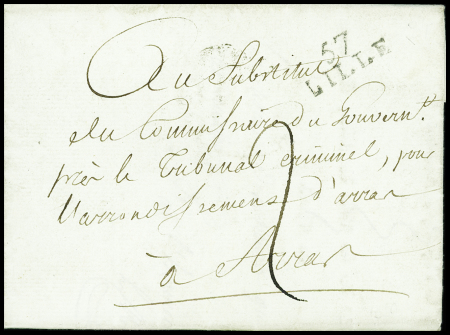 57
LILLE
Au Substitut
du Commissaire du Gouvernt.
près le Tribunal criminel, pour
l'arrondissement d'arras
à Arras